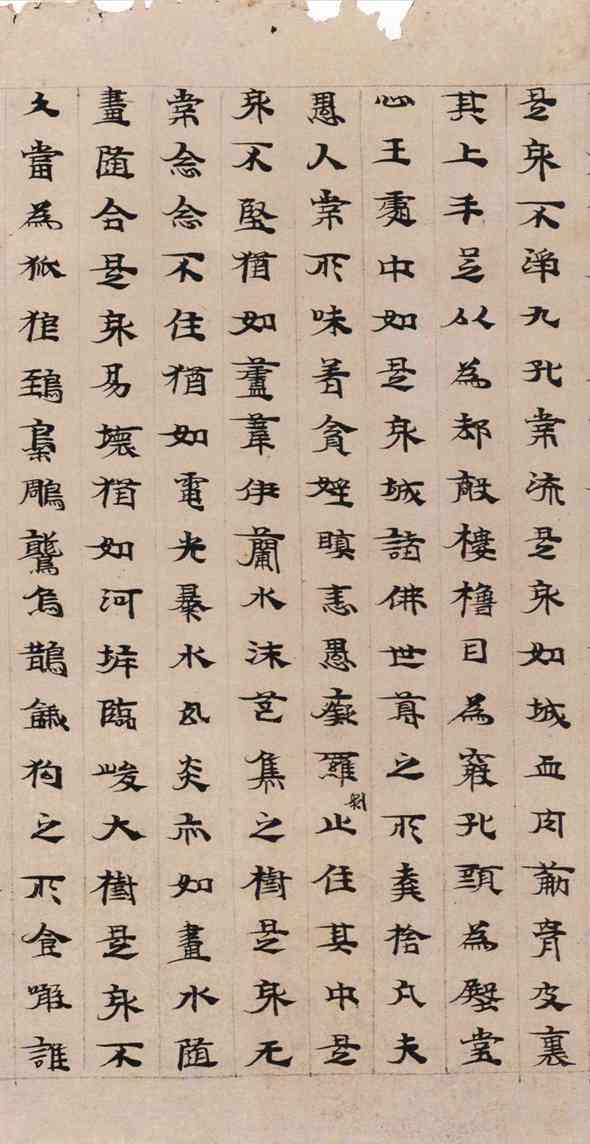 是身不淨九孔常流是身如城血肉筋骨皮裹
其上手足以為却敵樓櫓目為竅孔頭為殿堂
心王處中如是身城諸佛世尊之所棄捨凡夫
愚人常所味着貪婬瞋恚愚癡羅剎止住其中是
身不堅猶如蘆葦伊蘭水沫芭焦之樹是身无
常念念不住猶如電光暴水幻炎亦如畫水随
畫随合是身易壞猶如河岸臨峻大樹是身不
久當為狐狼鵄梟鵰鷲烏鵲餓狗之所食噉誰